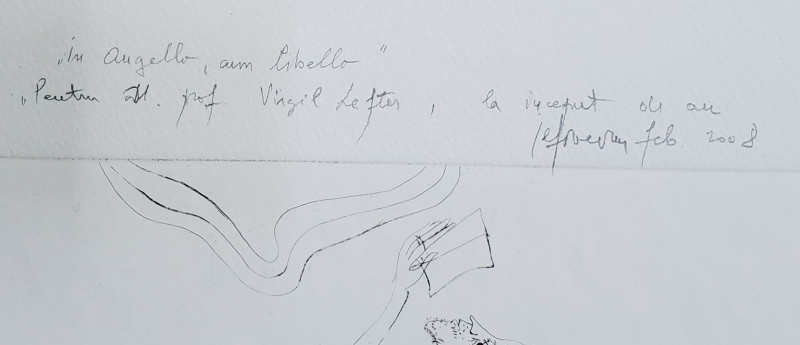 „In Angello, cum libello”
„Pentru dl. prof. Virgil Lefter, la inceput de an
feb. 2008